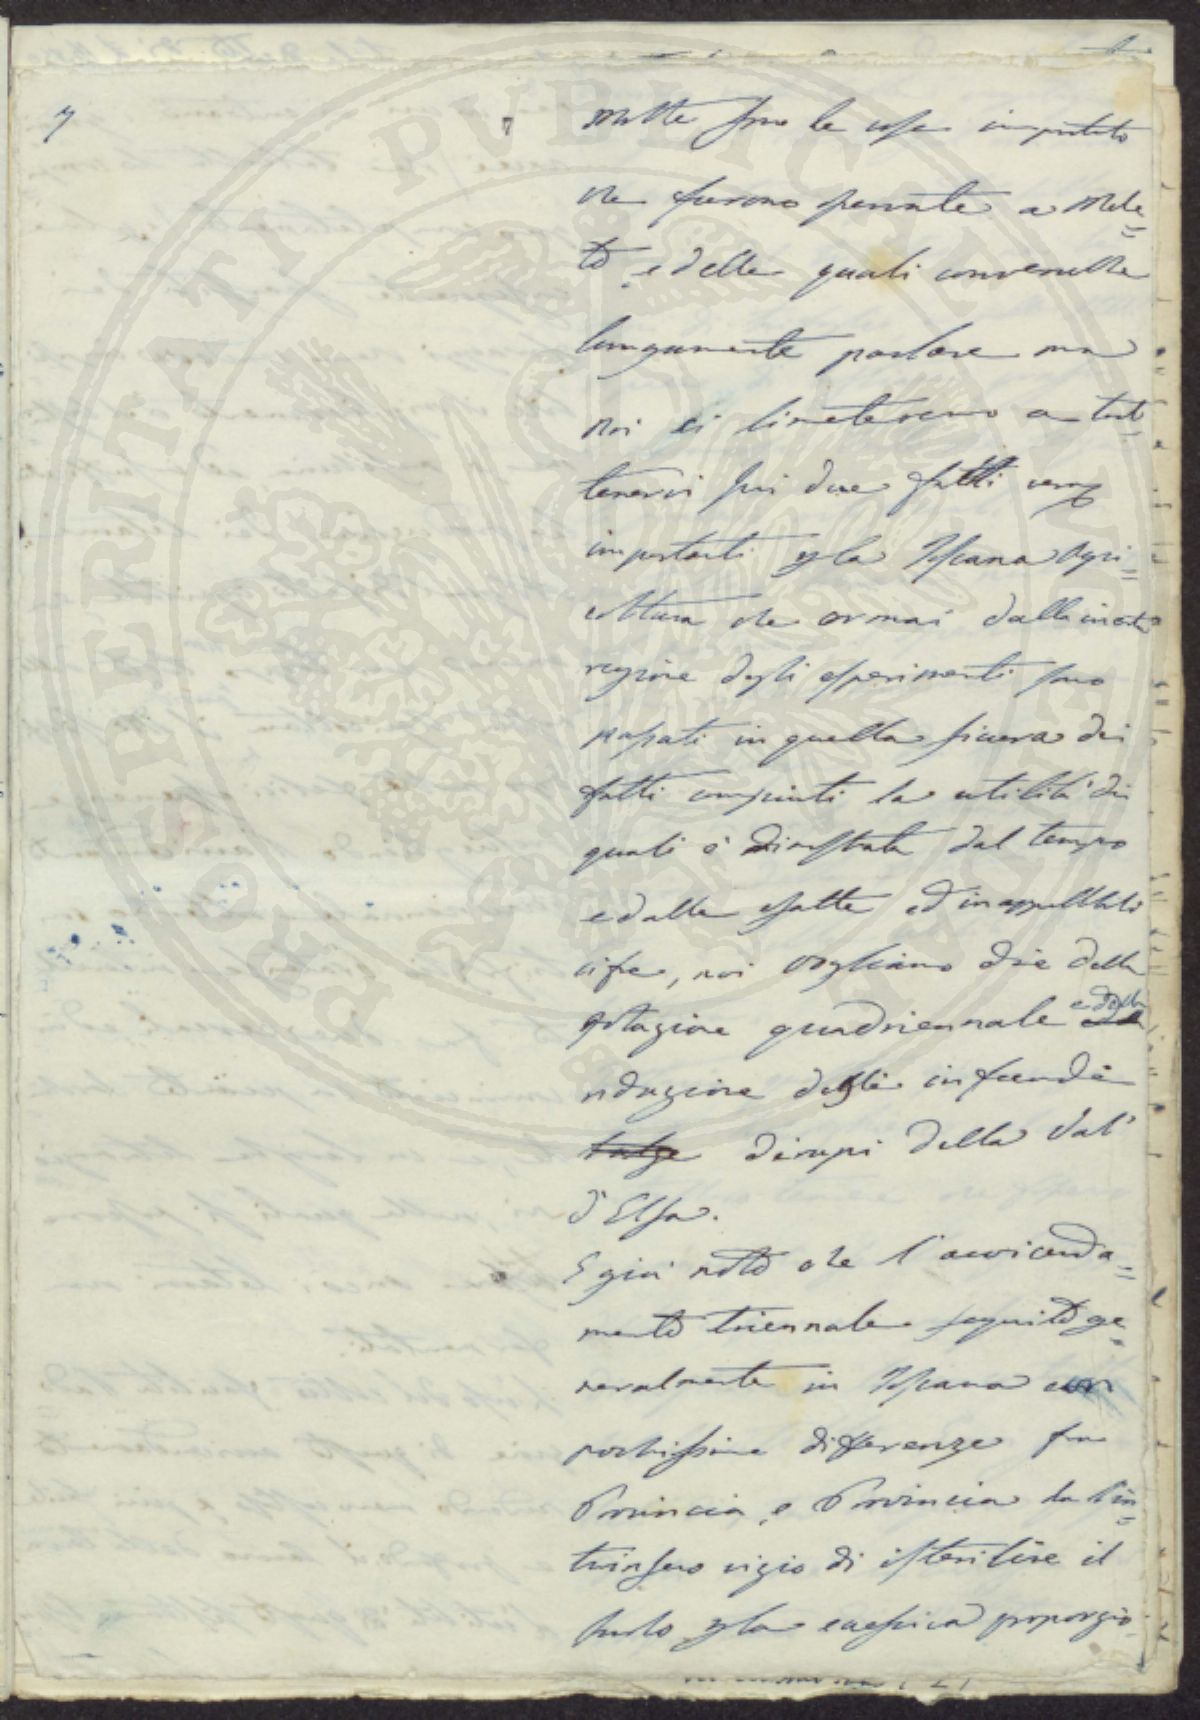 7
Molte sono le cose importanti
che furono operate a Mele=
to, e delle quali converrebbe
lungamente parlare ma
noi ci limiteremo a trat=
tenervi sui due fatti
importanti p la Toscana Agri=
coltura che ormai dalla incerta
regione degli esperimenti sono
passati in quella sicura dei
fatti compiuti la utilità dei
quali è dimostrata dal tempo
e dalle esatte ed inappellabili
cifre, noi vogliamo dire della
rotazione quadriennale e della
riduzione degli infecondi
balze dirupi della Val
d'Elsa.
E già noto che l'avvicenda=
mento triennale seguito ge=
neralmente in Toscana con
pochissime differenze fra
Provincia, e Provincia ha l'in=
trinseco vizio di isterilire il
suolo p la eccessiva proporzio
PROSPERITATI PUBLICAE AUGENDAE